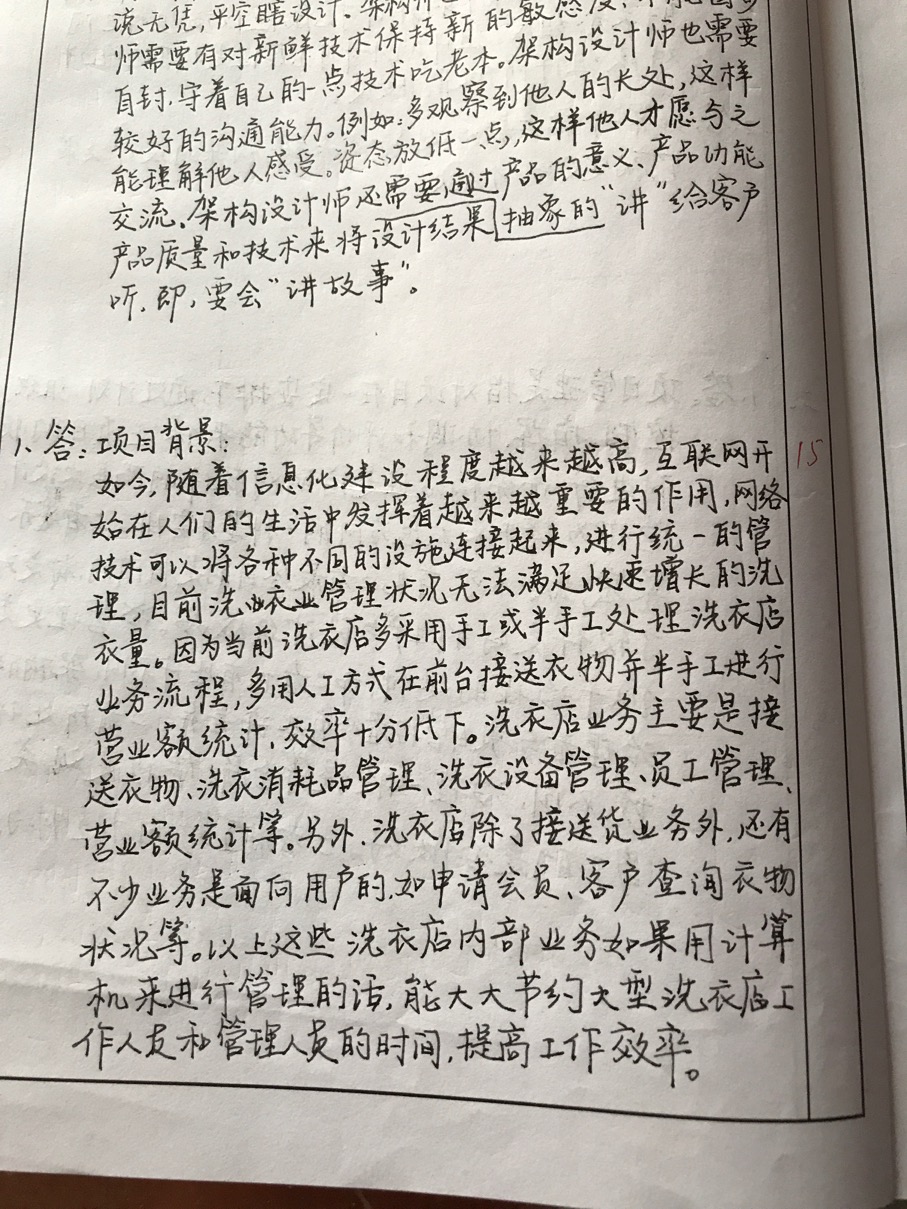 流无凭，平空瞎设计、架构
师需要有对新鲜技术保持新的敏感度、不能
自封，守着自己的一点技术吃老本。架构设计师也需要
较好的沟通能力。例如：多观察到他人的长处，这样
能理解他人感受。姿态放低一点，这样他人才愿与之
交流、架构设计师还需要通过产品的意义、产品功能
产品质量和技术来将设计结果抽象的“讲”给客户
听，即，要会“讲故事”。
1、答：项目背景：
15
如今，随着信息化建设程度越来越高，互联网开
始在人们的生活中发挥着越来越重要的作用，网络
技术可以将各种不同的设施连接起来，进行统一的管
理，目前洗衣业管理状况无法满足快速增长的洗
衣量。因为当前洗衣店多采用手工或半手工处理洗衣店
业务流程，多用人工方式在前台接送衣物并半手工进行
营业额统计，效率十分低下。洗衣店业务主要是接
送衣物、洗衣消耗品管理、洗衣设备管理、员工管理、
营业额统计等。另外，洗衣店除了接送货业务外，还有
不少业务是面向用户的，如申请会员、客户查询衣物
状况等。以上这些洗衣店内部业务如果用计算
机来进行管理的话，能大大节约大型洗衣店工
作人员和管理人员的时间，提高工作效率。